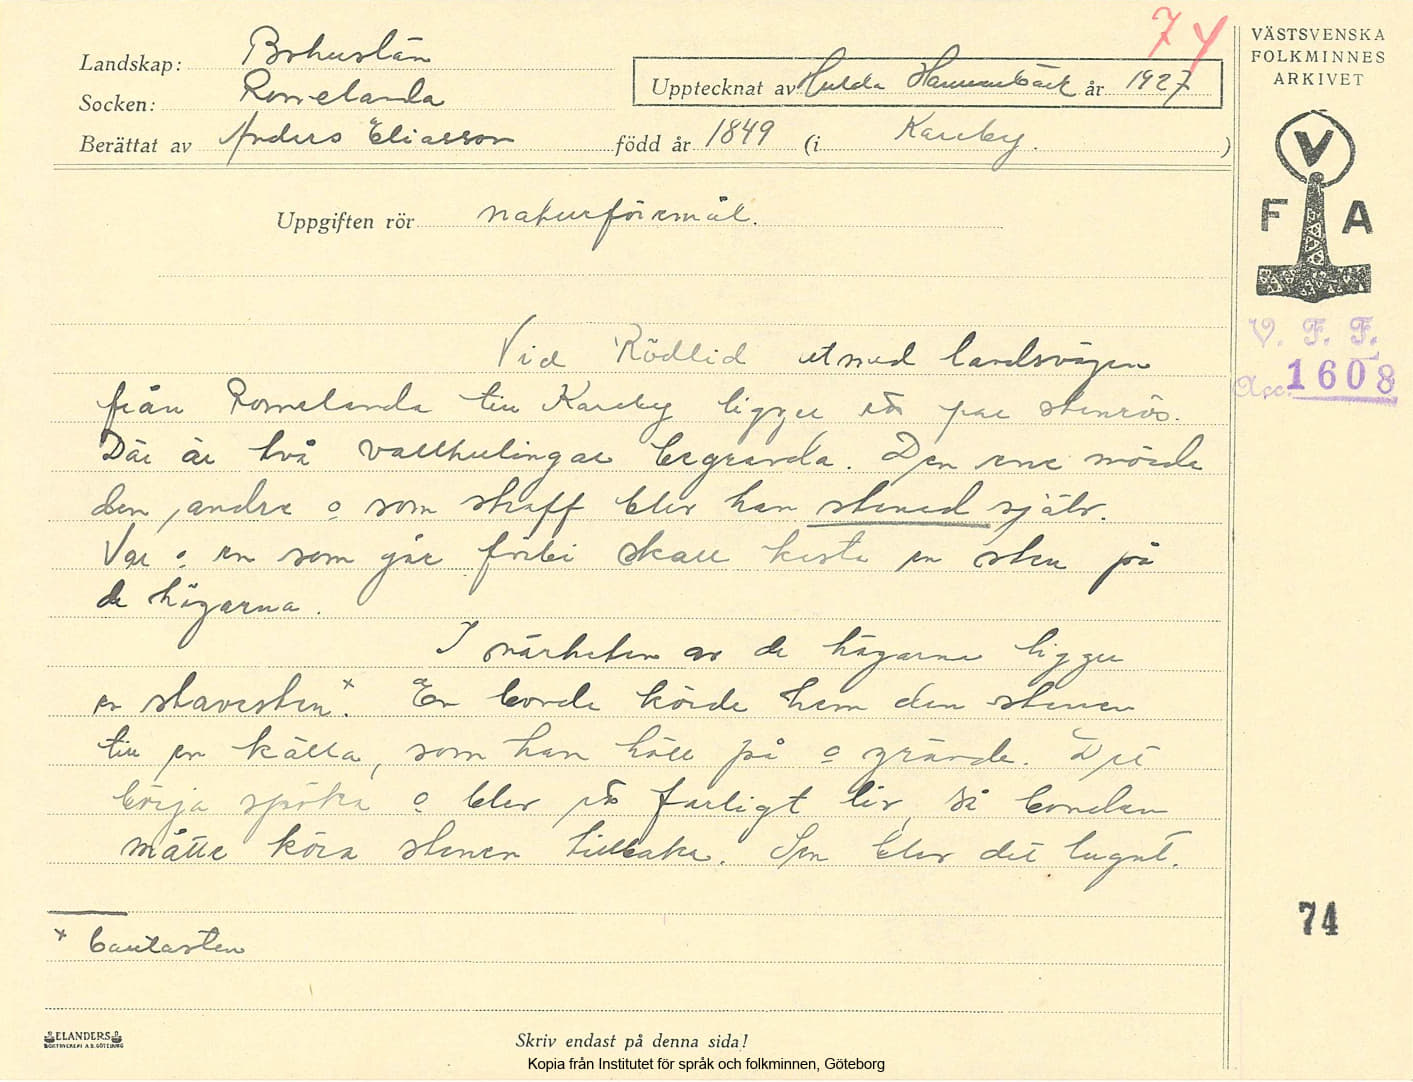 74
VÄSTSVENSKA
FOLKMINNES
ARKIVET
Landskap: Bohuslän
Socken: Romelanda
Upptecknat av Hulda Hammarbäck år 1927
Berättat av Anders Eliasson född år 1849 (i Kareby.)
Uppgiften rör naturföremål.
V
F A
V. F. F.
Acc. 1608
Vid Rödlid utmed landsvägen
från Romelanda till Kareby ligger ett par stenrös.
Där är två vallhulingar begravda. Den ene mörda
den andre o som straff blev han stened själv.
Var o en som går förbi skall kasta en sten på
de högarna.
I närheten av de högarna ligger
en stavesten x. En bonde körde hem den stenen
till en källa, som han höll på o grävde. Det
börja spöka o blev ett farligt liv, så bonden
måtte köra stenen tillbaka. Sen blev det lugnt.
74
x bautasten
ELANDERS
BOKTRYCKERI A.B. GÖTEBORG
Skriv endast på denna sida!
Kopia från Institutet för språk och folkminnen, Göteborg